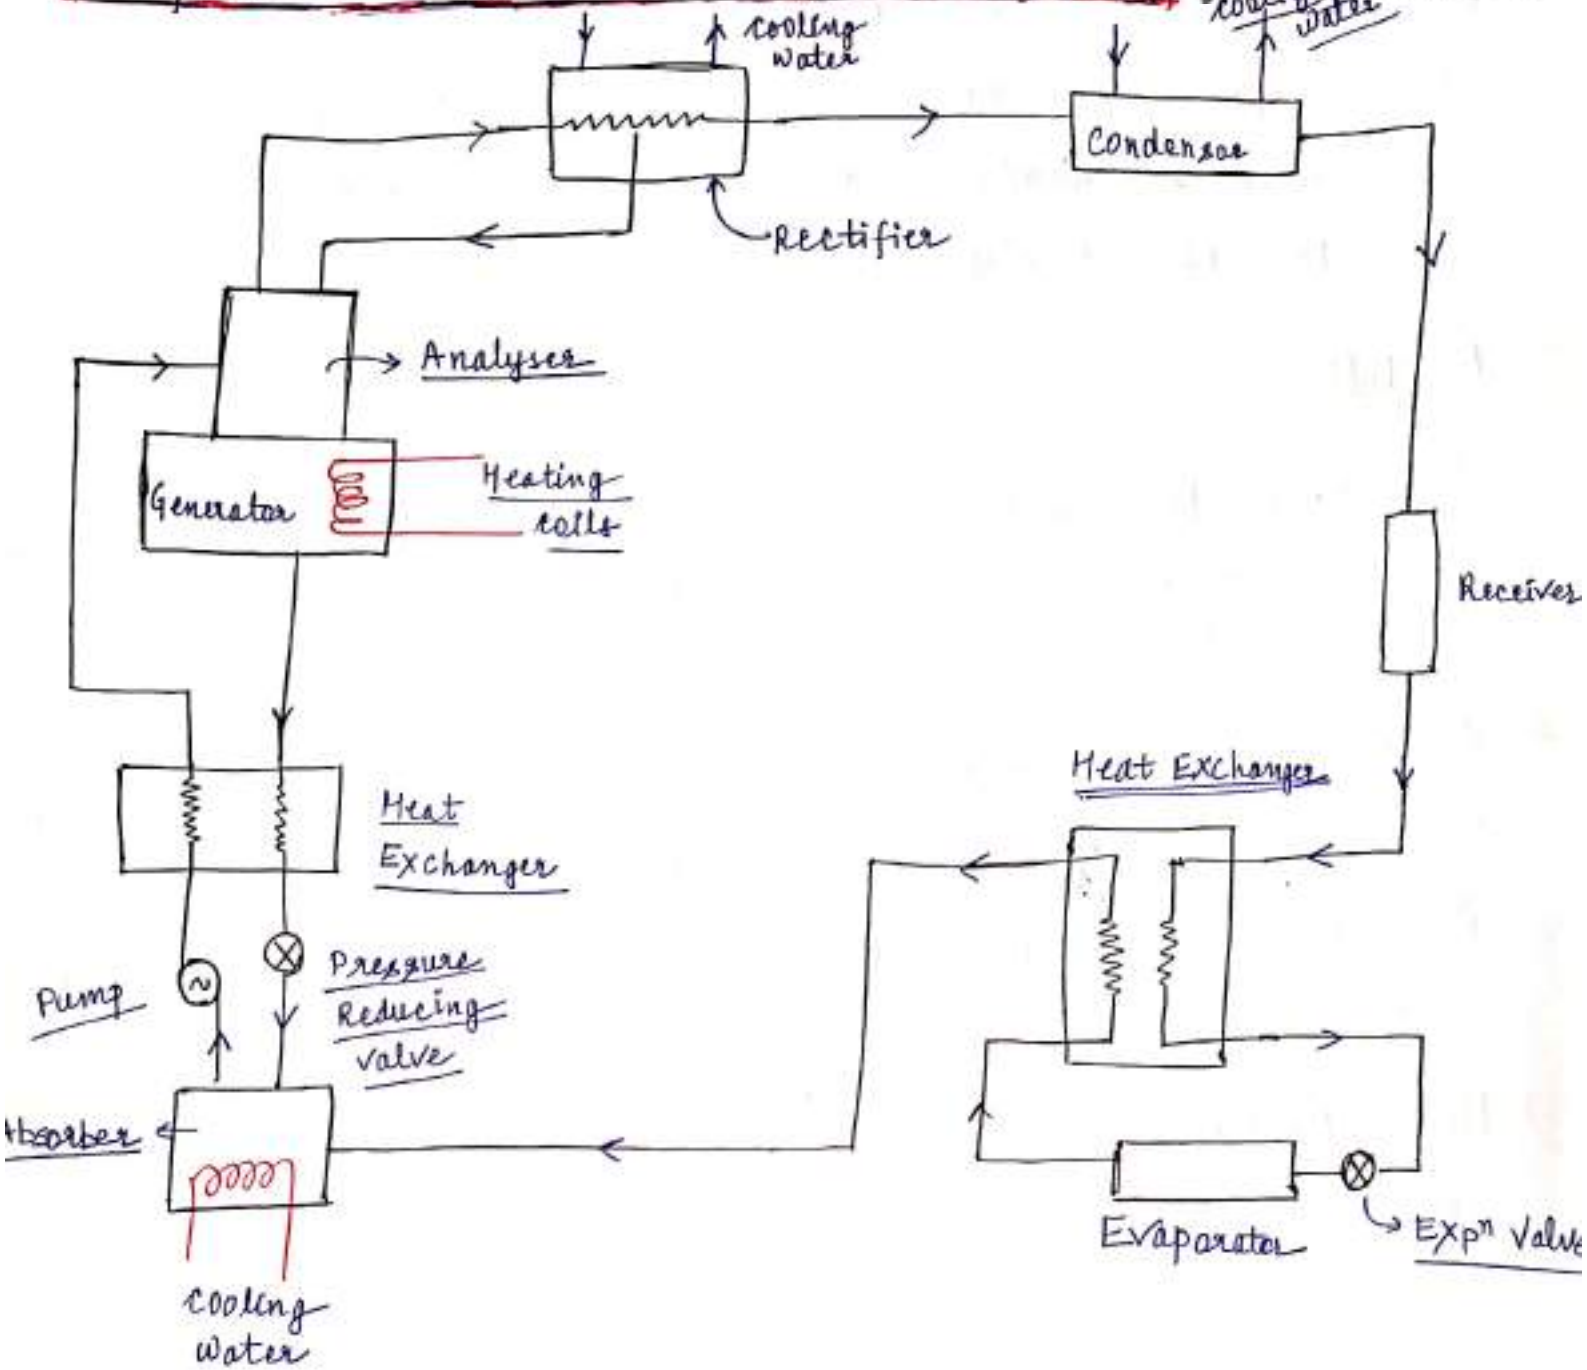 cooling
water
cooling
water
Condensor
Rectifier
Analyser
Generator
Heating
coils
Receiver
Heat Exchanger
Heat
Exchanger
Pump
Pressure
Reducing
valve
Absorber
Evaporator
Expⁿ Valve
cooling
water